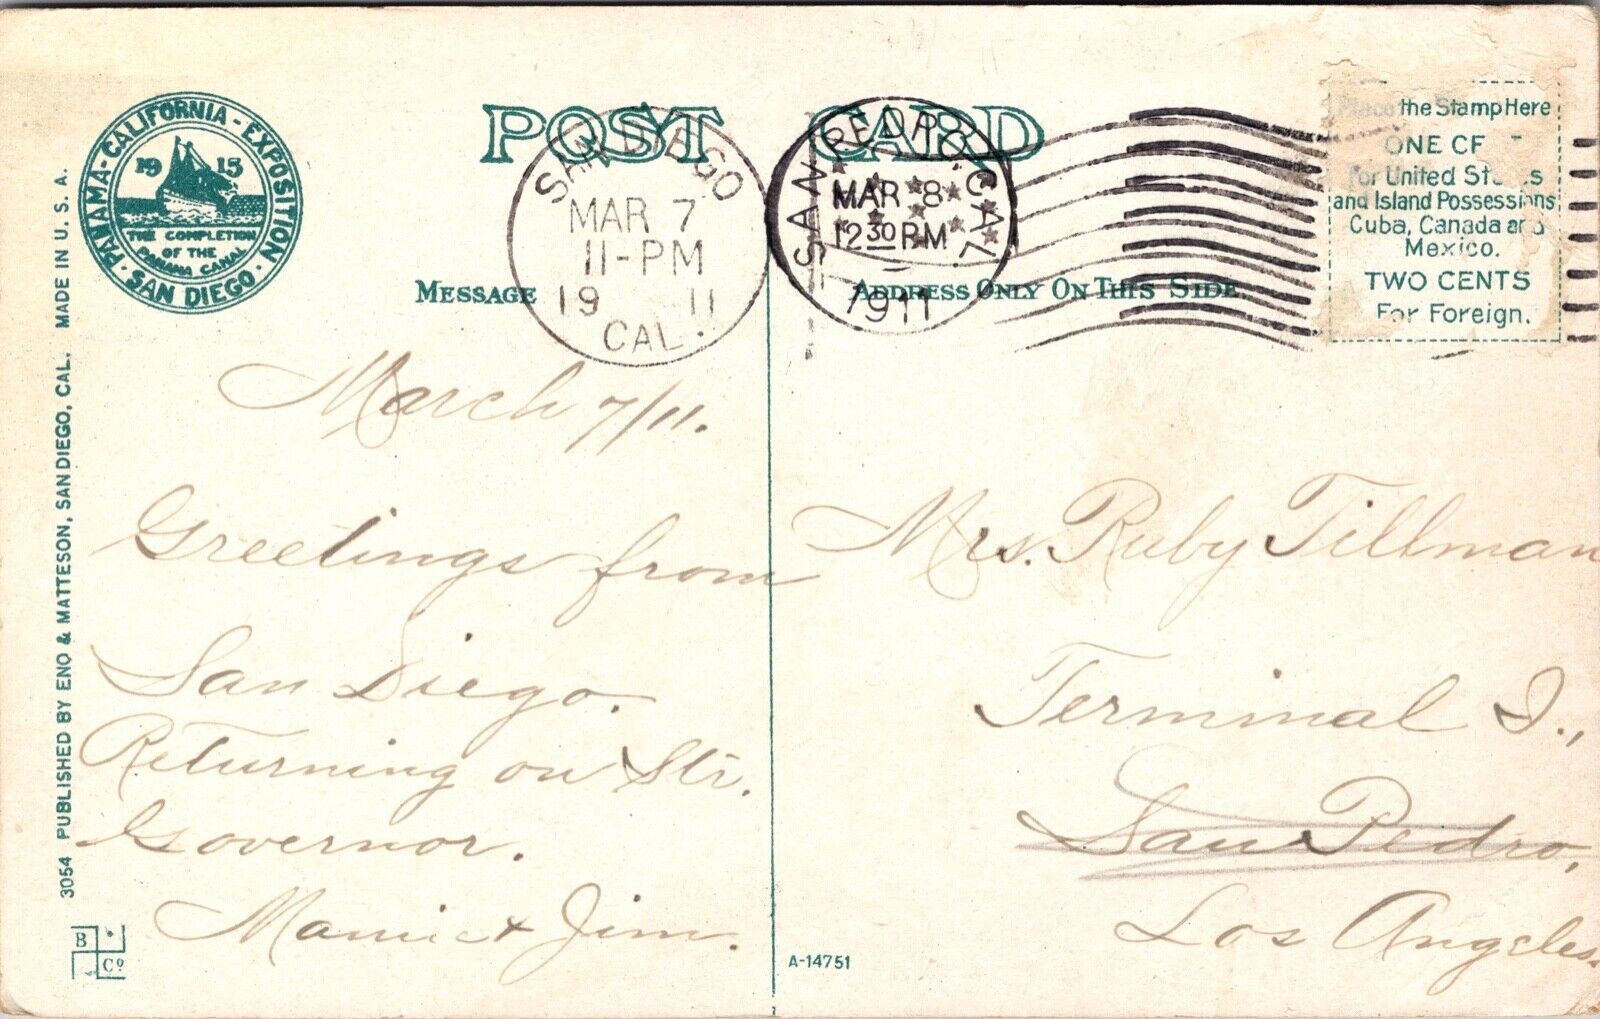 PANAMA-CALIFORNIA-EXPOSITION
SAN DIEGO
1915
THE COMPLETION
OF THE
PANAMA CANAL
POST CARD
SAN DIEGO
MAR 7
11-PM
19 11
CAL.
SAN PEDRO, CAL.
MAR 8
12 30 PM
1911
MESSAGE
ADDRESS ONLY ON THIS SIDE
Place the Stamp Here
ONE CE
for United States
and Island Possessions
Cuba, Canada and
Mexico.
TWO CENTS
For Foreign.
3054 PUBLISHED BY ENO & MATTESON, SAN DIEGO, CAL. MADE IN U. S. A.
March 7/11.
Greetings from
San Diego.
Returning on Str.
Governor.
Mamie & Jim.
Mrs. Ruby Tillman
Terminal I.,
San Pedro,
Los Angeles.
B
Co
A-14751